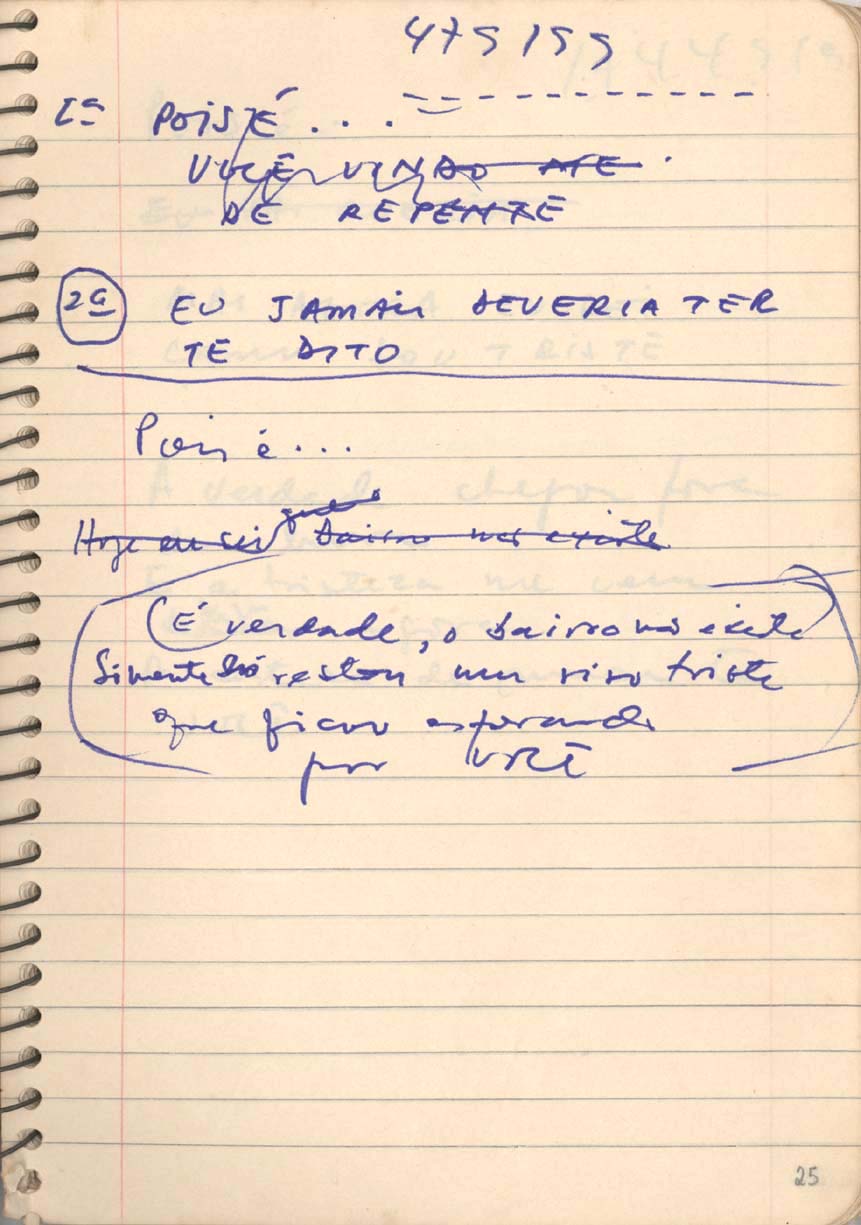 479199
1ª POIS É...
VOCÊ VINDO ATÉ
DE REPENTE
2ª EU JAMAIS DEVERIA TER
TE DITO
Pois é...
que
Hoje eu sei bairro não existe
É verdade, o bairro não existe
Somente só restou um riso triste
que ficou esperando
por VOCÊ
25